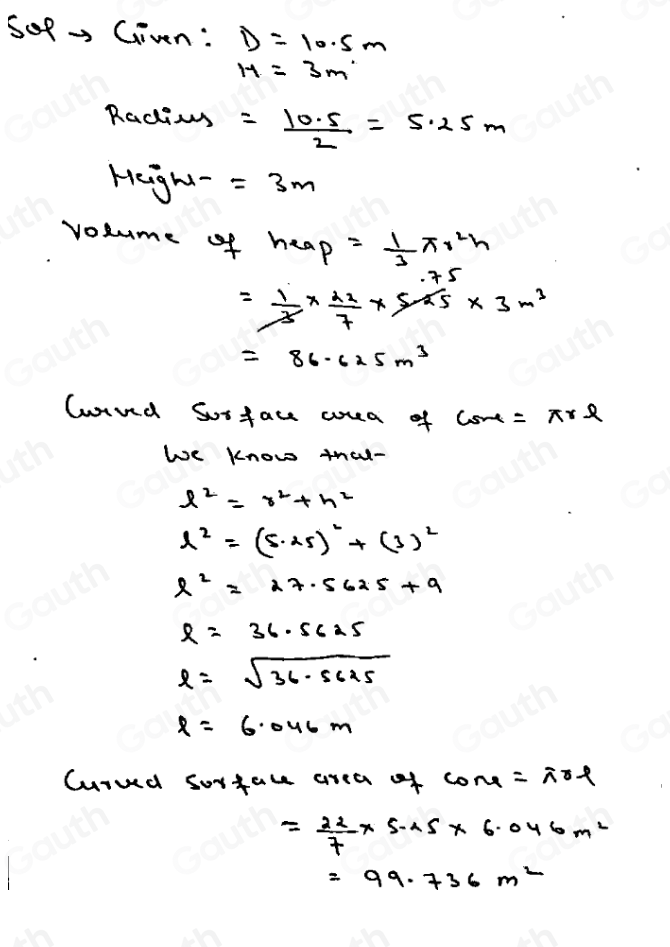 Sol → Given: D = 10.5 m
H = 3m
Radius = 10.5/2 = 5.25 m
Height = 3m
Volume of heap = 1/3 πr²h
.75
= 1/3 × 22/7 × 5.25 × 3 m³
= 86.625 m³
Curved Surface area of Cone = πrl
We Know that
l² = r² + h²
l² = (5.25)² + (3)²
l² = 27.5625 + 9
l = 36.5625
l = √36.5625
l = 6.046 m
Curved Surface area of cone = πrl
= 22/7 × 5.25 × 6.046 m²
= 99.736 m²